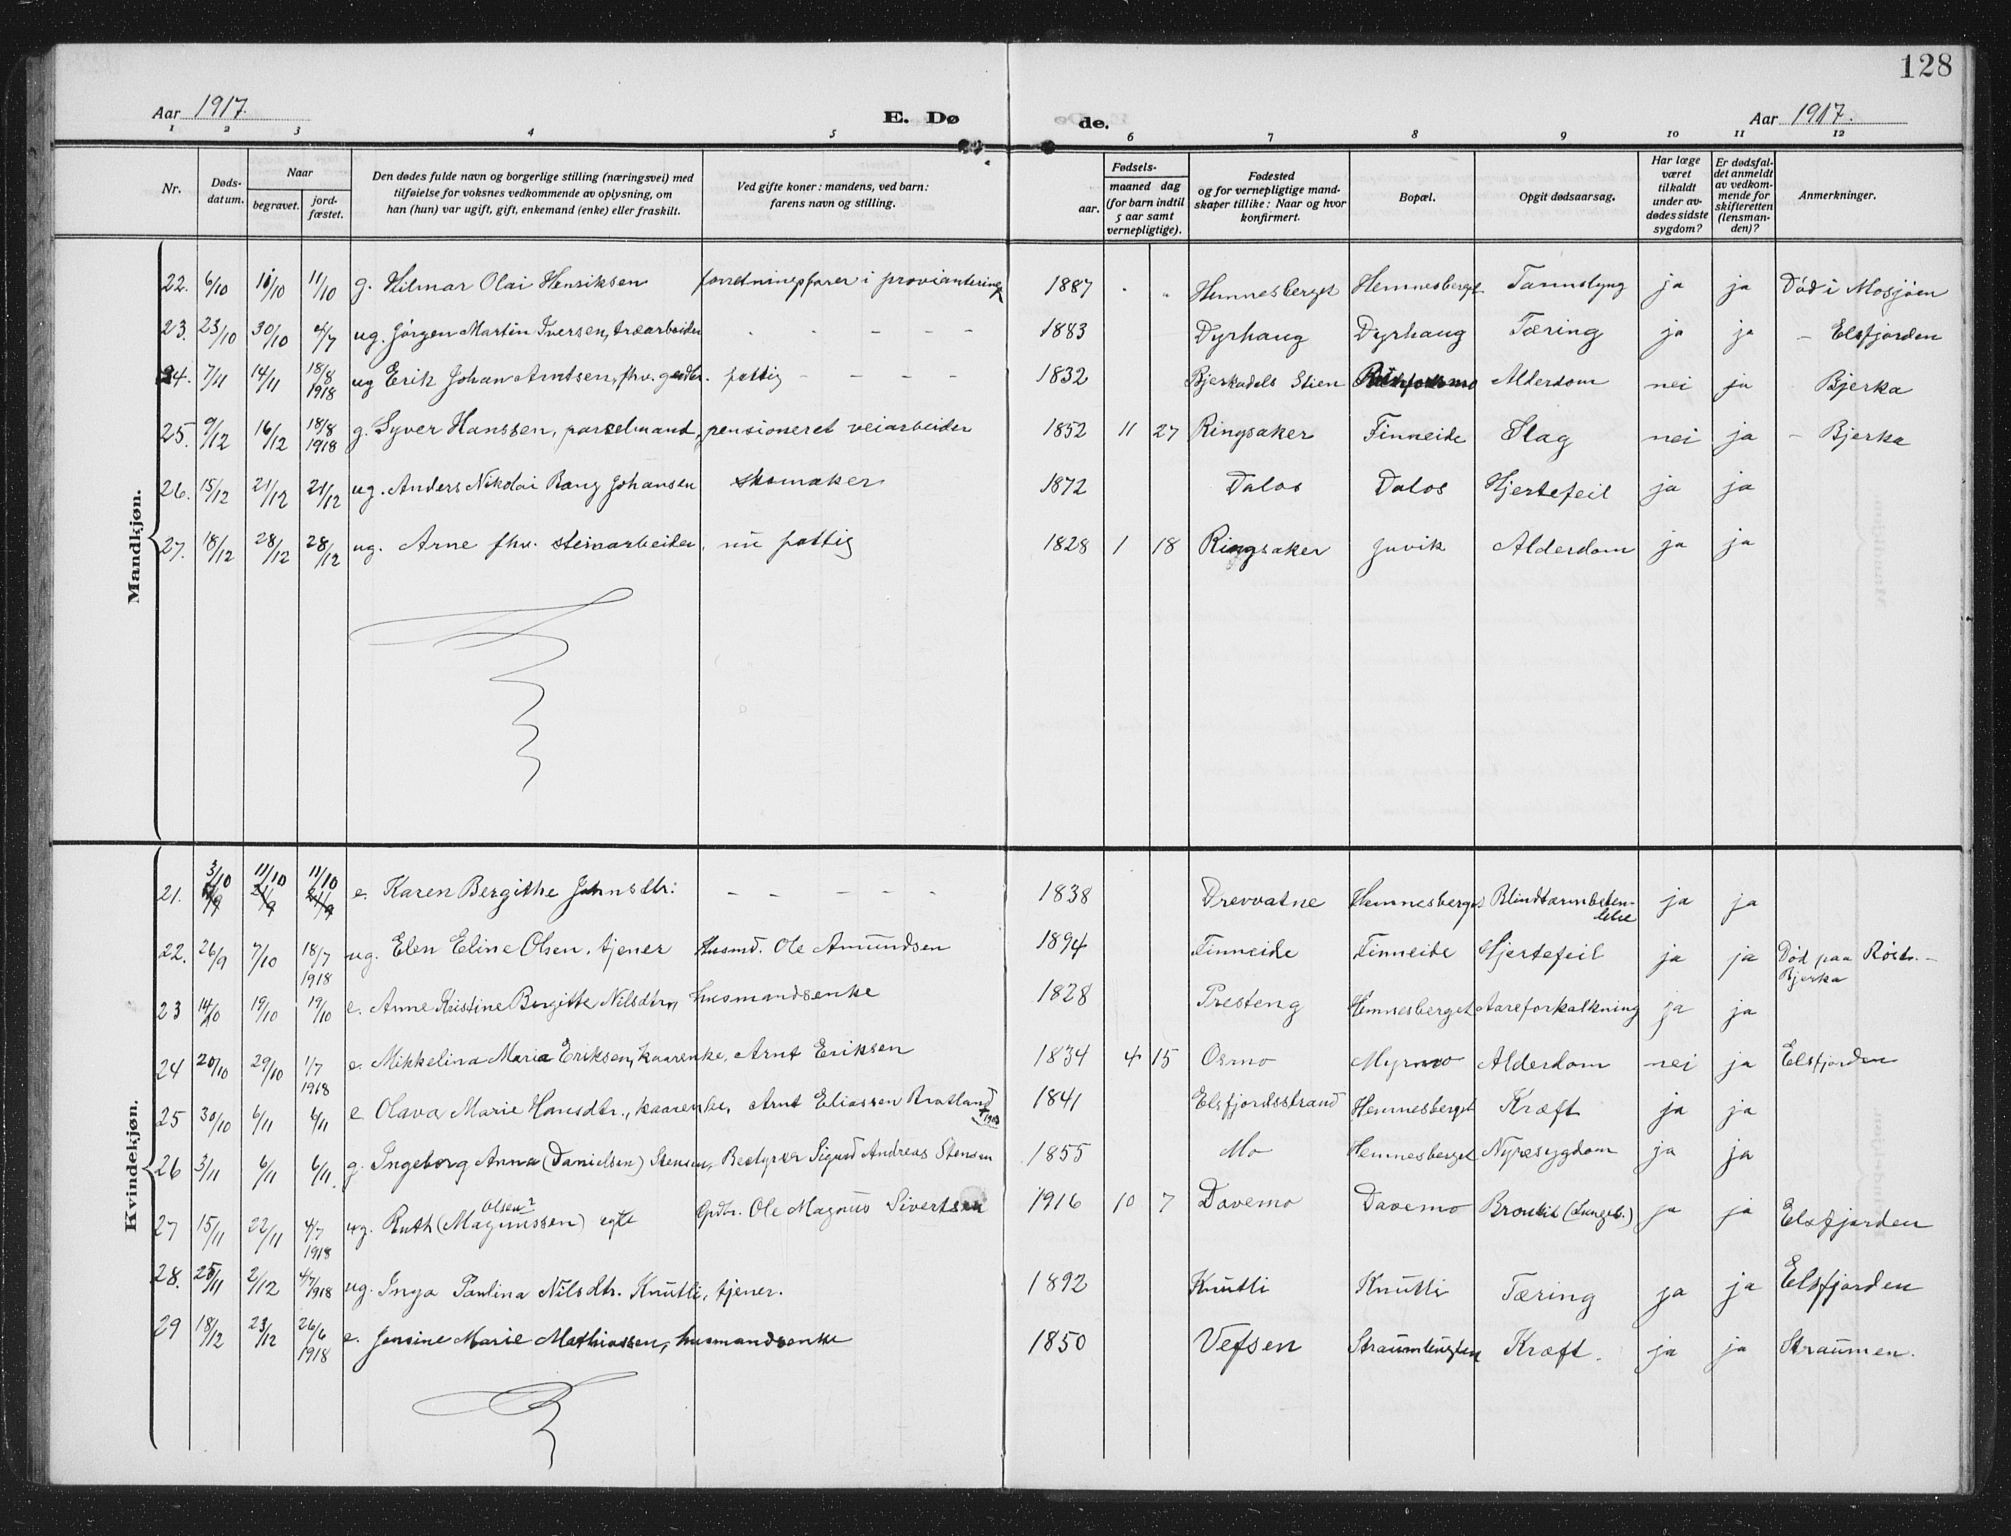 128
Aar 1917. E. Døde. Aar 1917.
1 2 3 4 5 6 7 8 9 10 11 12
Nr. | Døds-datum. | Naar begravet. | jord-fæstet. | Den dødes fulde navn og borgerlige stilling (næringsvei) med tilføielse for voksnes vedkommende av oplysning, om han (hun) var ugift, gift, enkemand (enke) eller fraskilt. | Ved gifte koner: mandens, ved barn: farens navn og stilling. | Fødsels- aar. | maaned dag (for barn indtil 5 aar samt vernepligtige). | Fødested og for vernepligtige mandskaper tillike: Naar og hvor konfirmert. | Bopæl. | Opgit dødsaarsag. | Har læge været tilkaldt under avdødes sidste sygdom? | Er dødsfaldet anmeldt av vedkommende for skifteretten (lensmanden)? | Anmerkninger.
Mandkjøn.
22. 6/10 11/10 11/10 g. Hilmar Olai Henriksen forretningsfører i proviantering 1887 " " Hemnesberget Hemnesberget ja ja Død i Mosjøen
23. 23/10 30/10 4/7 ug. Jørgen Martin Iversen, træarbeider - - - - - 1883 Dyrhaug Dyrhaug Tæring ja ja - Elsfjorden
24. 7/11 14/11 18/8 1918 ug Erik Johan Arntsen, fhv. gaardbr. fattig - - - - 1832 Bjerkadals Stien Alderdom nei ja Bjerka
25. 9/12 16/12 18/8 1918 g. Syver Hanssen, parselmand, pensioneret veiarbeider 1852 11 27 Ringsaker Finneide Slag nei ja - Bjerka
26. 15/12 21/12 21/12 ug. Anders Nikolai Rang Johansen skomaker 1872 Dalos Dalos Hjertefeil ja ja
27. 18/12 28/12 28/12 ug. Arne fhv. steinarbeider, nu fattig 1828 1 18 Ringsaker Juvik Alderdom ja ja
Kvindekjøn.
21. 3/10 11/10 11/10 e. Karen Bergithe Jahnsdtr: - - - - - 1838 Drevvatne Hemnesberget Blindtarmbeten-delse ja ja
22. 26/9 7/10 18/7 1918 ug. Elen Eline Olsen, tjener Husmd. Ole Amundsen 1894 Finneide Finneide Hjertefeil ja ja Død paa Bjerka
23 14/10 19/10 19/10 e. Anne Kristine Birgitte Nilsdtr, husmandsenke 1828 Presteng Hemnesberget Aareforkalkning ja ja
24 20/10 29/10 1/7 1918 e. Mikkelina Maria Eriksen, kaarenke, Arnt Eriksen 1834 4 15 Osmo Myrmo Alderdom nei ja Elsfjorden
25 30/10 6/11 6/11 e Olava Marie Hansdtr., kaarenke, Arnt Eliassen Bratland 1841 Elsfjordsstrand Hemnesberget Kræft ja ja
26 3/11 6/11 6/11. g. Ingeborg Anna (Danielsen) Stensen, Bestyrer Sigurd Andreas Stensen 1855 Mo Hemnesberget Nyresygdom ja ja
27 15/11 22/11 4/7 1918 ug. Ruth (Magnussen) Olsen? egte Gpdbr. Ole Magnus Sivertsen 1916 10 7 Davemo Davemo Bronkit (Lungeb.) ja ja Elsfjorden
28. 25/11 2/12 4/7 1918 ug. Inga Paulina Nilsdtr. Knutli, tjener. 1892 Knutli Knutli Tæring ja ja Elsfjorden
29 18/12 23/12 26/6 1918 e. Jensine Marie Mathiassen, husmandsenke 1850 Vefsen Kræft. ja ja Straumen.